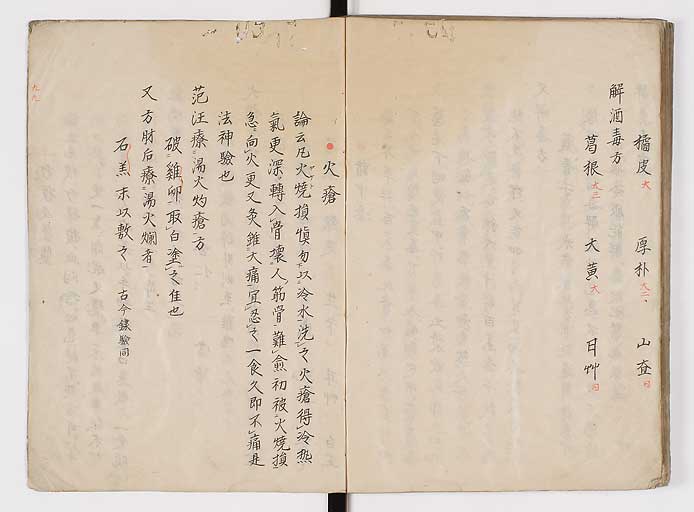 橘皮大 厚朴大二 山査同
解酒毒方
葛根大三 大黄大 甘艸同
火瘡
論云凡火燒損慎勿以冷水洗之火瘡得冷热
氣更深轉入骨壞人筋骨難愈初被火燒損
急向火更又灸雖大痛宜忍之一食久即不痛是
法神驗也
范汪療湯火灼瘡方
破雞卵取白塗之佳也
又方肘后療湯火爛者
石羔末以敷之 古今錄驗同
九九